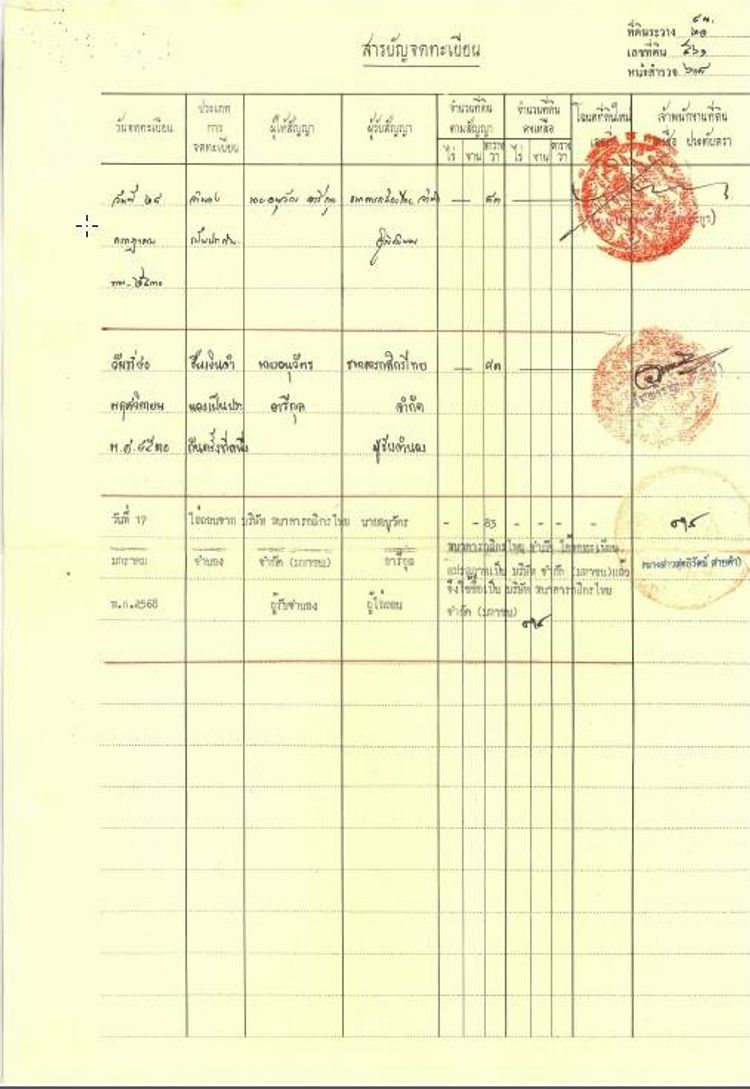 สารบัญจดทะเบียน
ที่ดินระวาง
เลขที่ดิน
หน้าสำรวจ
วันจดทะเบียน
ประเภท
การ
จดทะเบียน
ผู้ให้สัญญา
ผู้รับสัญญา
จำนวนที่ดิน
ตามสัญญา
ไร่ งาน ตาราง
วา
จำนวนที่ดิน
คงเหลือ
ไร่ งาน ตาราง
วา
โฉนดที่ดินใหม่
เจ้าพนักงานที่ดิน
ประทับตรา
วันที่ ๒๙ จำนอง นายอนุวัตร อารีกุล — ๘๓ —
กรกฎาคม
ขึ้นเงินจำ นายอนุวัตร ธนาคารกสิกรไทย — ๘๓ —
พฤศจิกายน นองเป็นประ อารีกุล จำกัด
พ.ศ. กันครั้งที่หนึ่ง ผู้รับจำนอง
วันที่ 17 ไถ่ถอนจาก บริษัท ธนาคารกสิกรไทย นายอนุวัตร - - 83 - - - -
มกราคม จำนอง จำกัด (มหาชน) อารีกุล
พ.ศ.2568 ผู้รับจำนอง ผู้ไถ่ถอน
ธนาคารกสิกรไทย จำกัด ได้จดทะเบียน
แปรสภาพเป็น บริษัท จำกัด (มหาชน)แล้ว
จึงใช้ชื่อเป็น บริษัท ธนาคารกสิกรไทย
จำกัด (มหาชน)